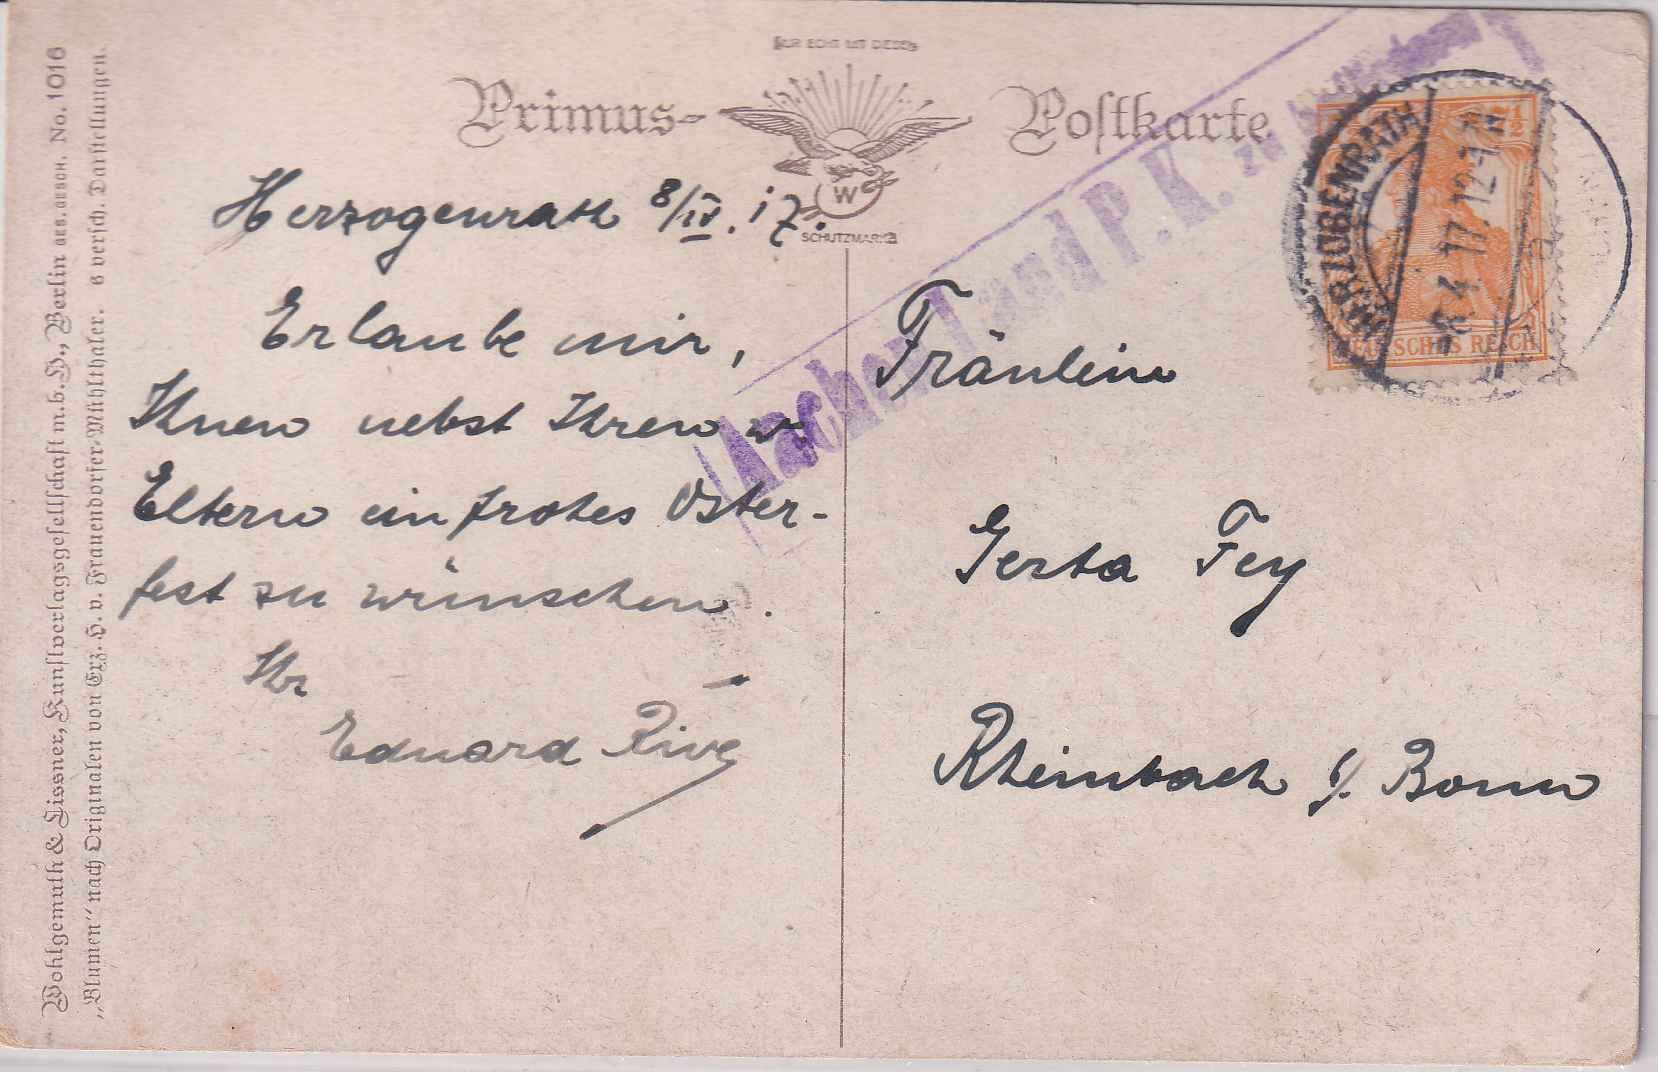 NUR ECHT MIT DIESER
Primus-
Poſtkarte
W
SCHUTZMARKE
Herzogenrath 8/IV. 17.
Erlaube mir,
Ihnen nebst Ihren w.
Eltern ein frohes Oster-
fest zu wünschen.
Ihr
Eduard
Fräulein
Gerta Fey
Rheinbach b/. Bonn
Aachen Land P. K. zu
HERZOGENRATH
8.4.17.12-1
7½
DEUTSCHES REICH
Wohlgemuth & Lissner, Kunſtverlagsgeſellſchaft m. b. H., Berlin No. 1016
„Blumen“ nach Originalen von Erz.-H. v. Frauendorfer-Mühlthaler. 6 verſch. Darſtellungen.